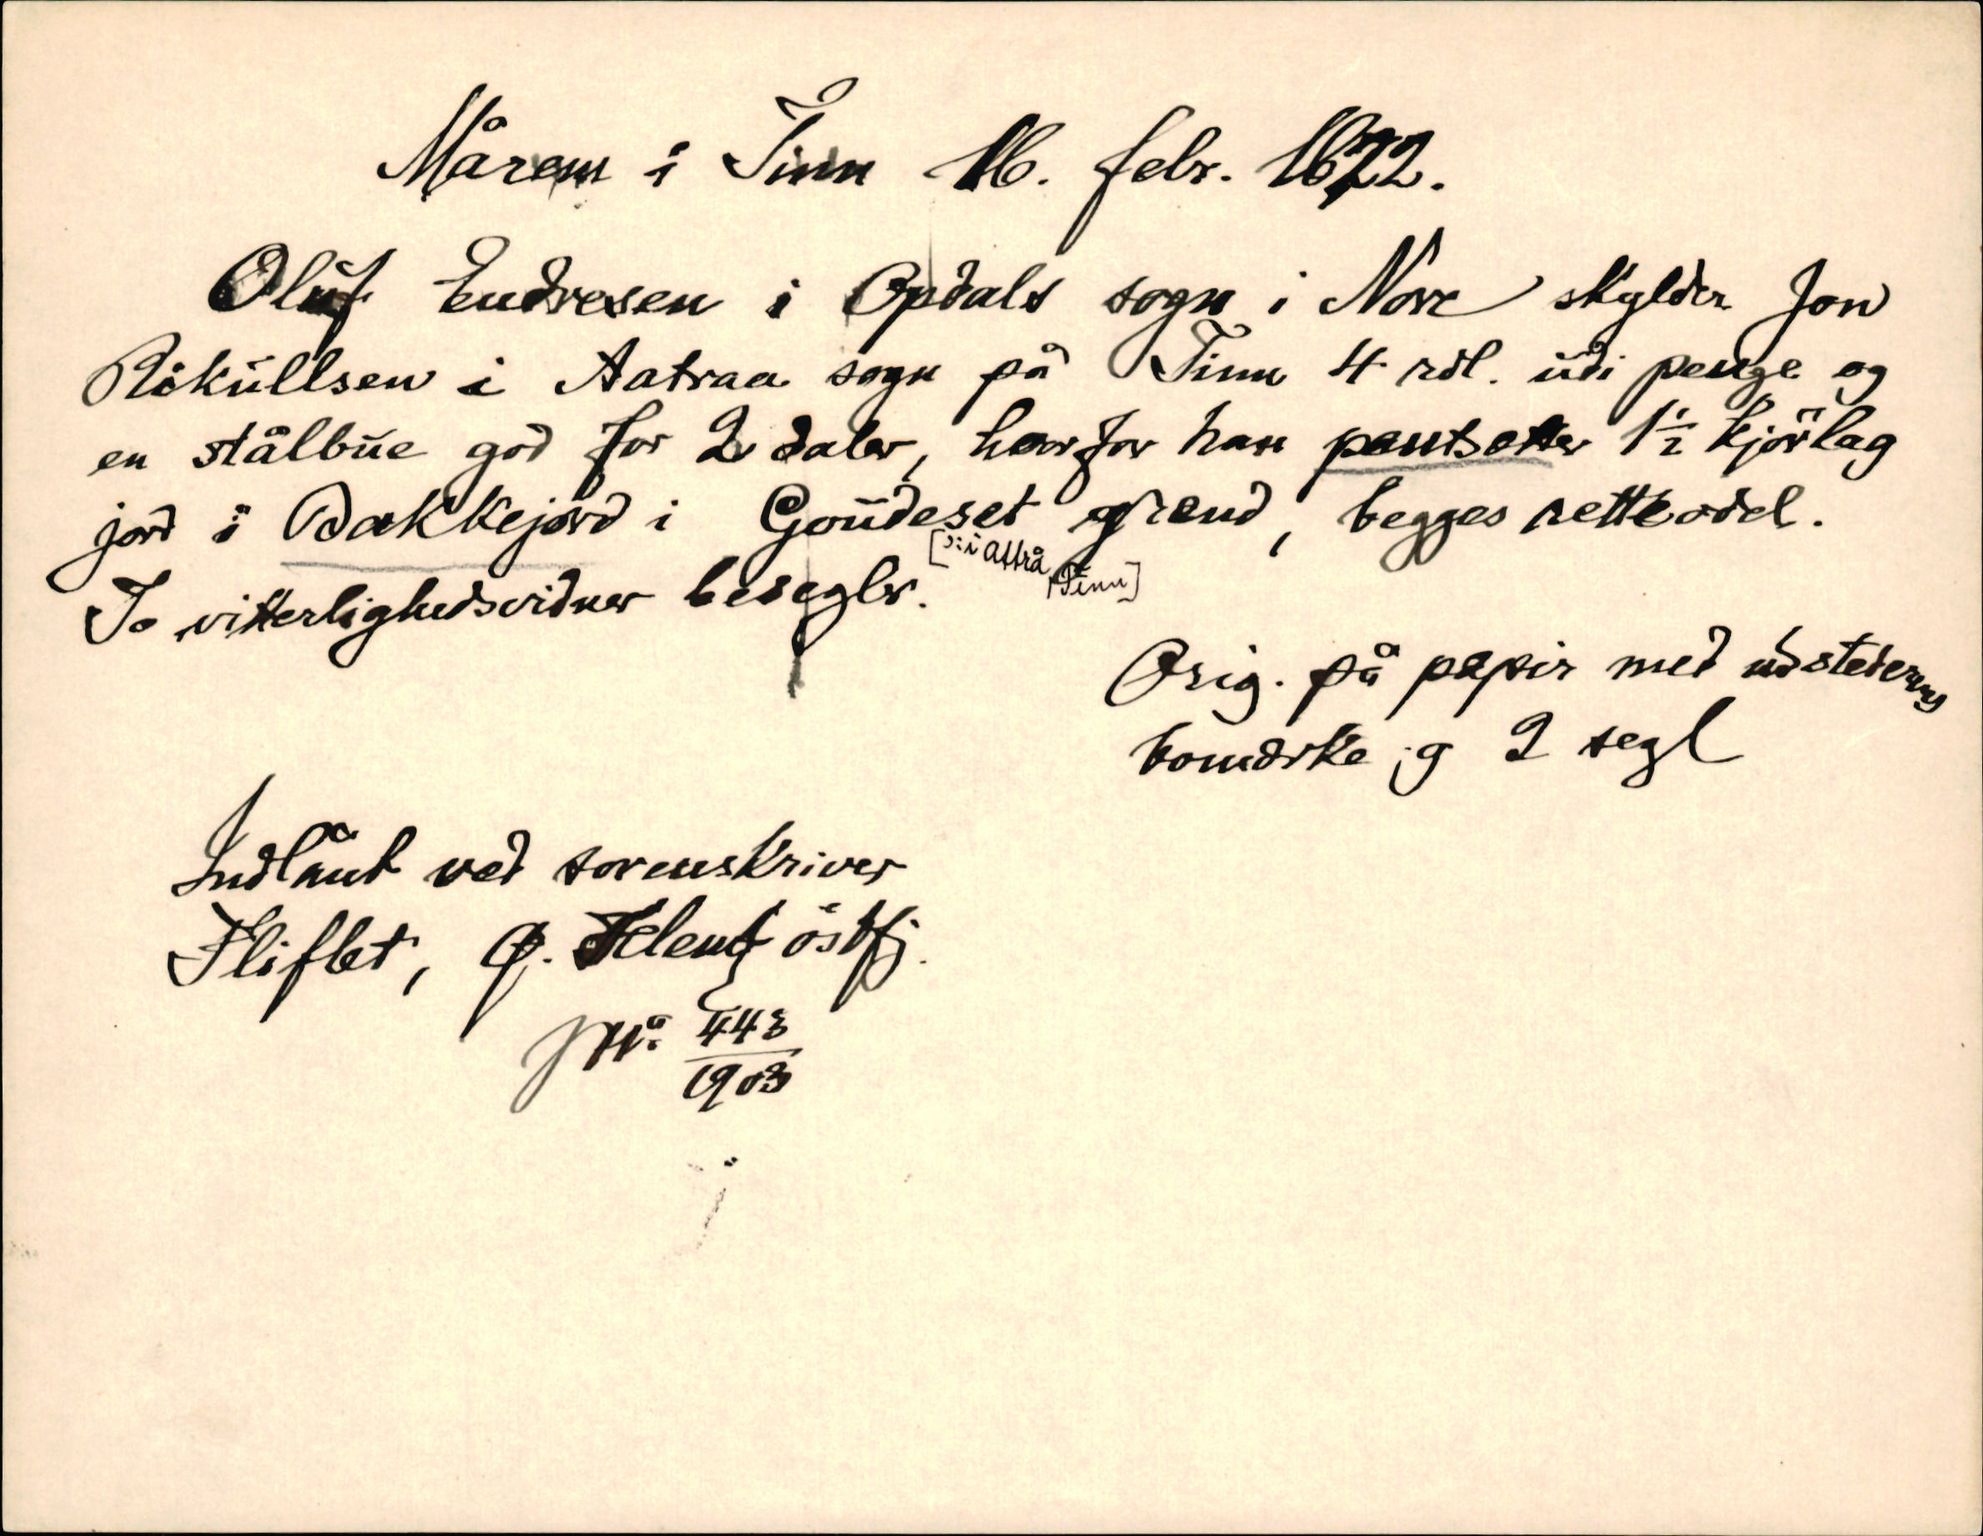 Mårem i Tinn 16. febr. 1622.
Oluf Endresen i Opdals sogn i Nore skylder Jon
Rikullsen i Aatraa sogn på Tinn 4 rdl. udi penge og
en stålbue god for 2 daler, hvorfor han pantsetter 1½ kjörlag
jord i Bakkejord i Goudeset grend, begges rette odel.
[ɔ: i Attrå Tinn]
To vitterlighedsvidner besegler.
Orig. på papir med udstederens
bomærke og 2 segl
Indlånt ved sorenskriver
Fliflet, ö. Telem. östfj.
J No. 443
1903